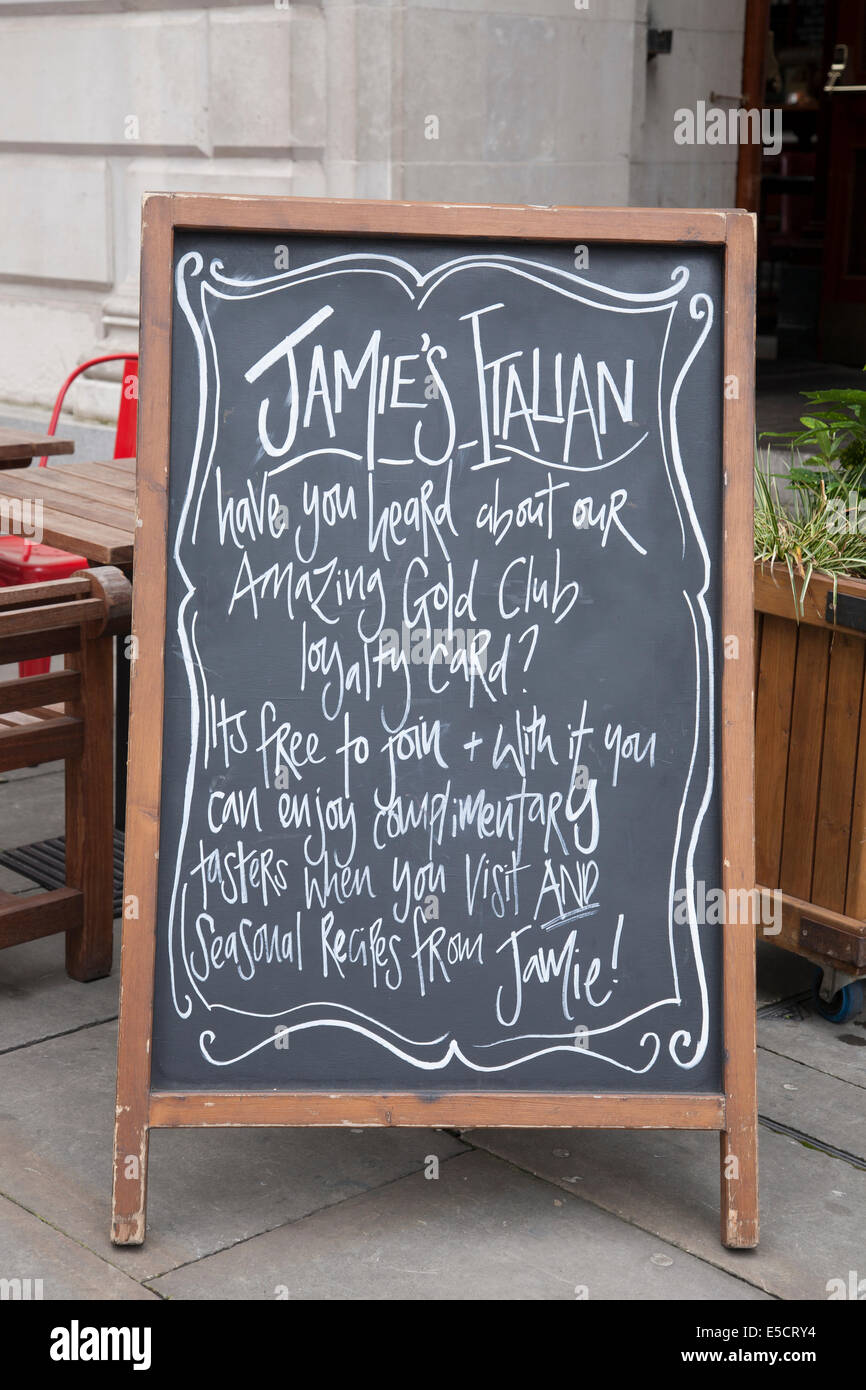 JAMIE'S ITALIAN
have you heard about our
Amazing Gold Club
loyalty card?
Its free to join + with it you
can enjoy complimentary
tasters when you visit AND
Seasonal Recipes from Jamie!
alamy
alamy
Image ID: E5CRY4
www.alamy.com